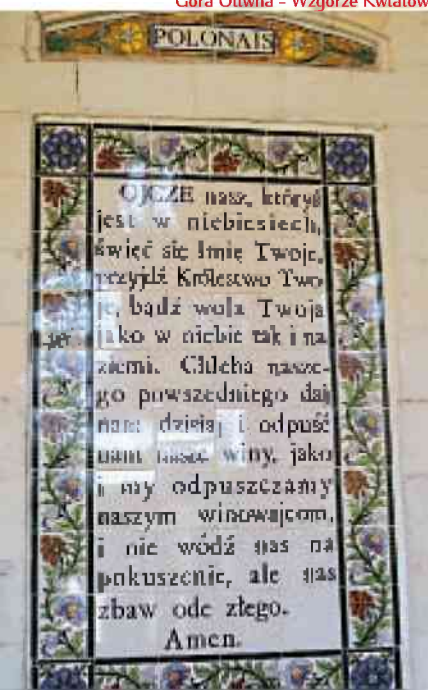 Góra Oliwna - Wzgórze Kwiatów
POLONAIS
OJCZE nasz, któryś
jest w niebiesiech,
święć się Imię Twoje,
przyjdź Królestwo Two-
je, bądź wola Twoja
jako w niebie tak i na
ziemi. Chleba nasze-
go powszedniego daj
nam dzisiaj i odpuść
nam nasze winy, jako
i my odpuszczamy
naszym winowajcom,
i nie wódź nas na
pokuszenie, ale nas
zbaw ode złego.
Amen.